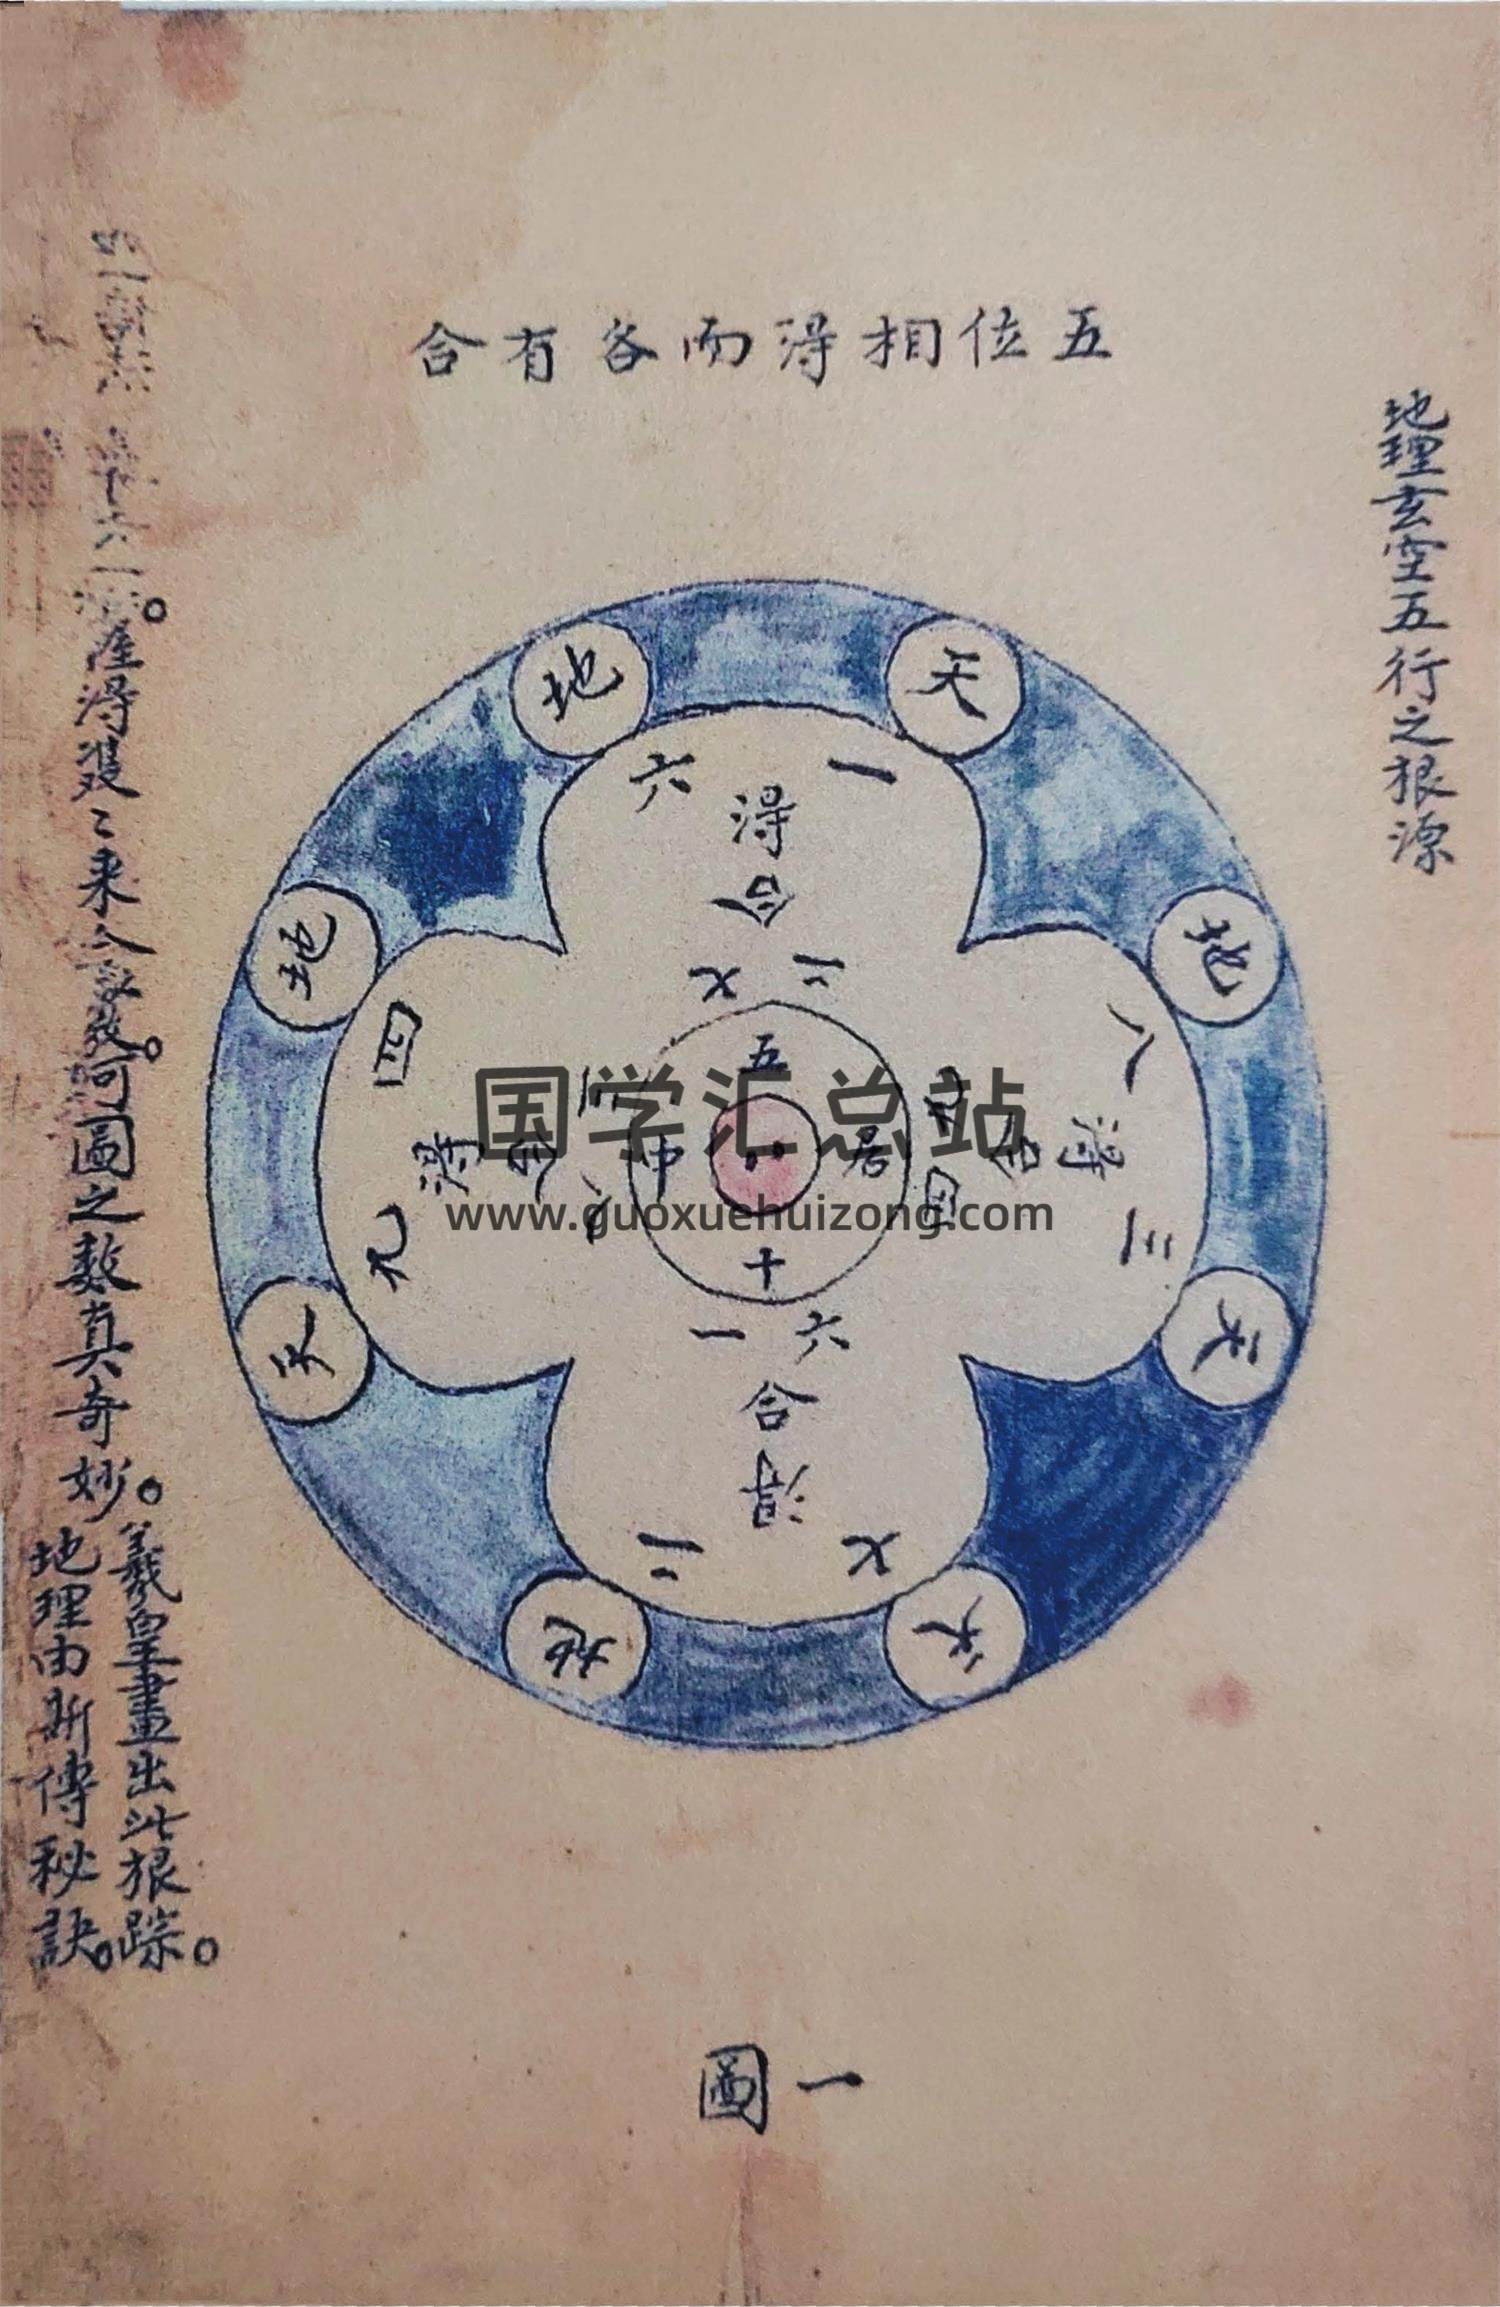 五位相得而各有合
地理玄空五行之根源
天
地
一
六
得
合
二
七
地
天
八
三
得
合
九
四
五
居
中
十
三
八
合
得
四
九
地
天
六
一
合
得
七
二
天
地
得雙〻來合
河圖之數真奇妙。
羲皇畫出此根踪。
地理由斯傳秘訣。
圖一
国学汇总站
www.guoxuehuizong.com